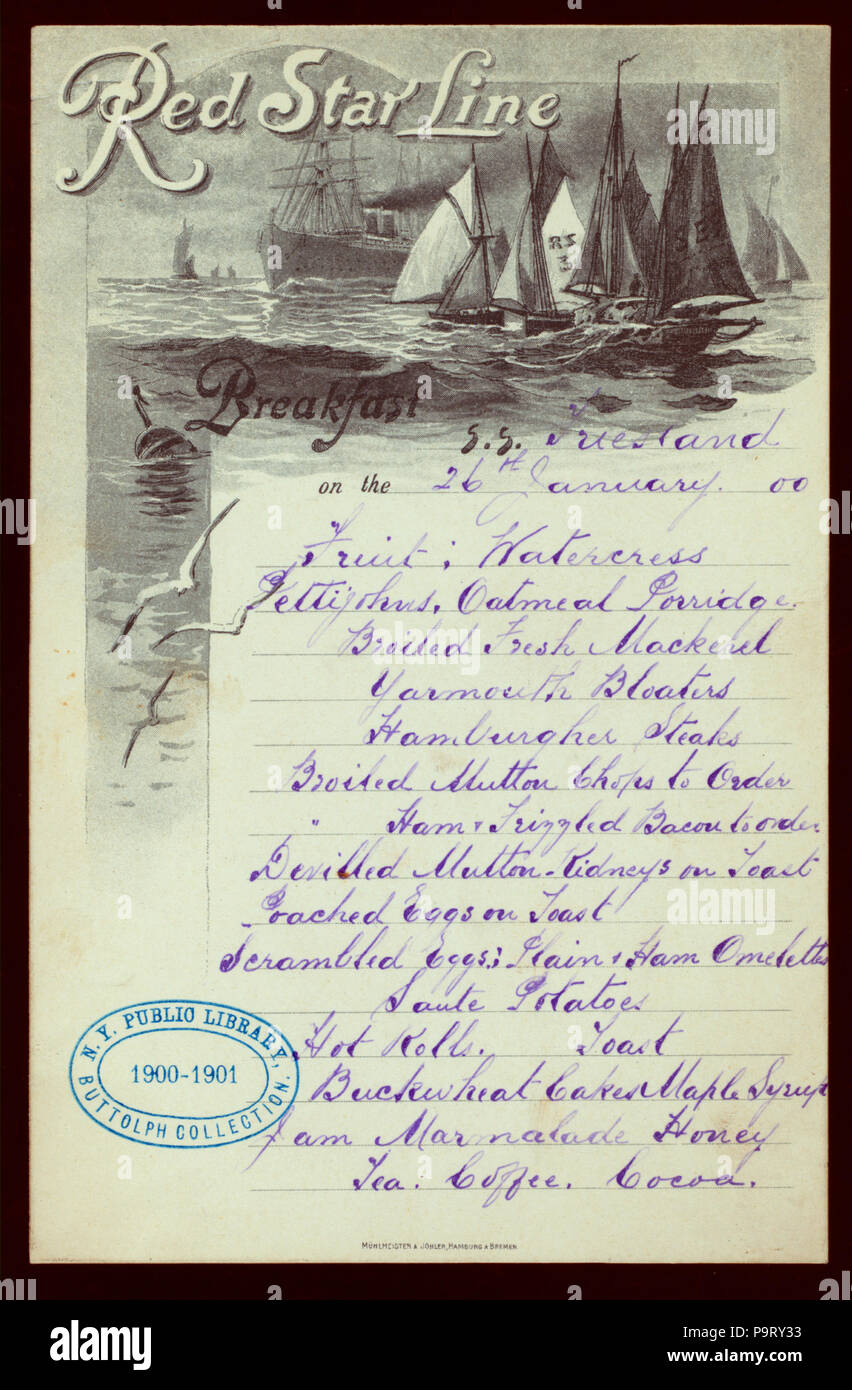 Red Star Line
RS
Breakfast
S.S. Friesland
on the 26th January. 00
Fruit ; Watercress
Pettijohns, Oatmeal Porridge.
Broiled Fresh Mackerel
Yarmouth Bloaters
Hamburgher Steaks
Broiled Mutton Chops to Order
" Ham & Frizzled Bacon to order
Devilled Mutton-Kidneys on Toast
Poached Eggs on Toast
Scrambled Eggs; Plain & Ham Omelettes
Saute Potatoes
Hot Rolls. Toast
Buckwheat Cakes Maple Syrup
Jam Marmalade Honey
Tea. Coffee. Cocoa.
N. Y. PUBLIC LIBRARY,
1900-1901
BUTTOLPH COLLECTION.
MÜHLMEISTER & JOHLER, HAMBURG & BREMEN
alamy
alamy
Image ID: P9RY33
www.alamy.com